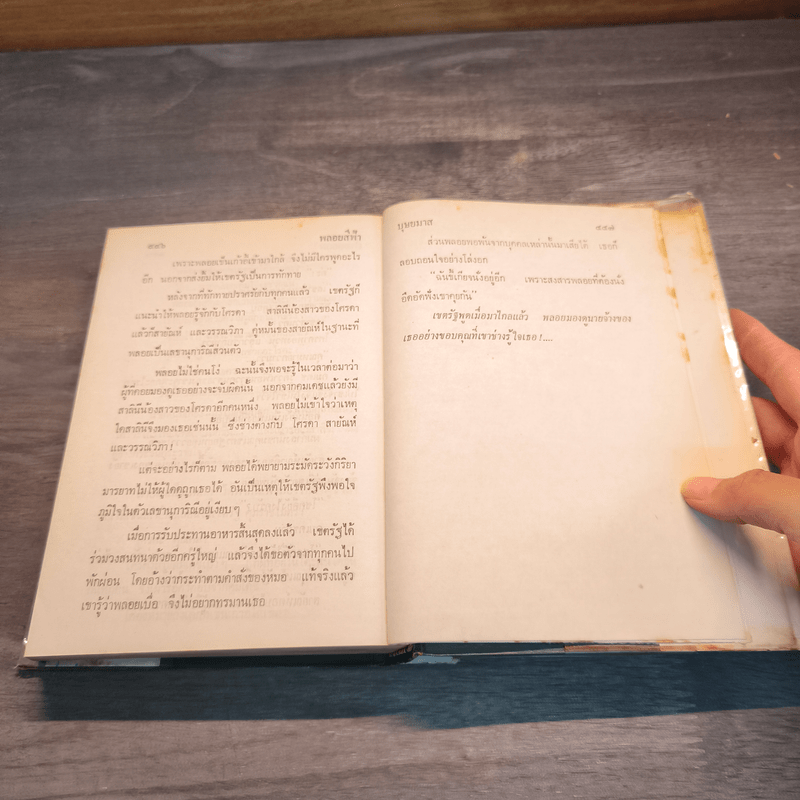 ๕๔๖ พลอยสีฟ้า
เพราะพลอยเข็นเก้าอี้เข้ามาใกล้ จึงไม่มีใครพูดอะไร
อีก นอกจากส่งยิ้มให้เขตรัฐเป็นการทักทาย
หลังจากที่ทักทายปราศรัยกับทุกคนแล้ว เขตรัฐก็
แนะนำให้พลอยรู้จักกับโครดา สาลินีน้องสาวของโครดา
แล้วก็สายัณห์ และวรรณวิภา คู่หมั้นของสายัณห์ในฐานะที่
พลอยเป็นเลขานุการิณีส่วนตัว
พลอยไม่ใช่คนโง่ ฉะนั้นจึงพอจะรู้ในเวลาต่อมาว่า
ผู้ที่คอยมองดูเธออย่างจะจับผิดนั้น นอกจากคมเดชแล้วยังมี
สาลินีน้องสาวของโครดาอีกคนหนึ่ง พลอยไม่เข้าใจว่าเหตุ
ใดสาลินีจึงมองเธอเช่นนั้น ซึ่งช่างต่างกับ โครดา สายัณห์
และวรรณวิภา!
แต่จะอย่างไรก็ตาม พลอยได้พยายามระมัดระวังกิริยา
มารยาทไม่ให้ผู้ใดดูถูกเธอได้ อันเป็นเหตุให้เขตรัฐพึงพอใจ
ภูมิใจในตัวเลขานุการิณีอยู่เงียบๆ
เมื่อการรับประทานอาหารสิ้นสุดลงแล้ว เขตรัฐได้
ร่วมวงสนทนาด้วยอีกครู่ใหญ่ แล้วจึงได้ขอตัวจากทุกคนไป
พักผ่อน โดยอ้างว่ากระทำตามคำสั่งของหมอ แท้จริงแล้ว
เขารู้ว่าพลอยเบื่อ จึงไม่อยากทรมานเธอ
บุษยมาส ๕๔๗
ส่วนพลอยพอพ้นจากบุคคลเหล่านั้นมาเสียได้ เธอก็
ลอบถอนใจอย่างโล่งอก
"ฉันขี้เกียจนั่งอยู่อีก เพราะสงสารพลอยที่ต้องนั่ง
อึดอัดฟังเขาคุยกัน"
เขตรัฐพูดเมื่อมาไกลแล้ว พลอยมองดูนายจ้างของ
เธออย่างขอบคุณที่เขาช่างรู้ใจเธอ!....